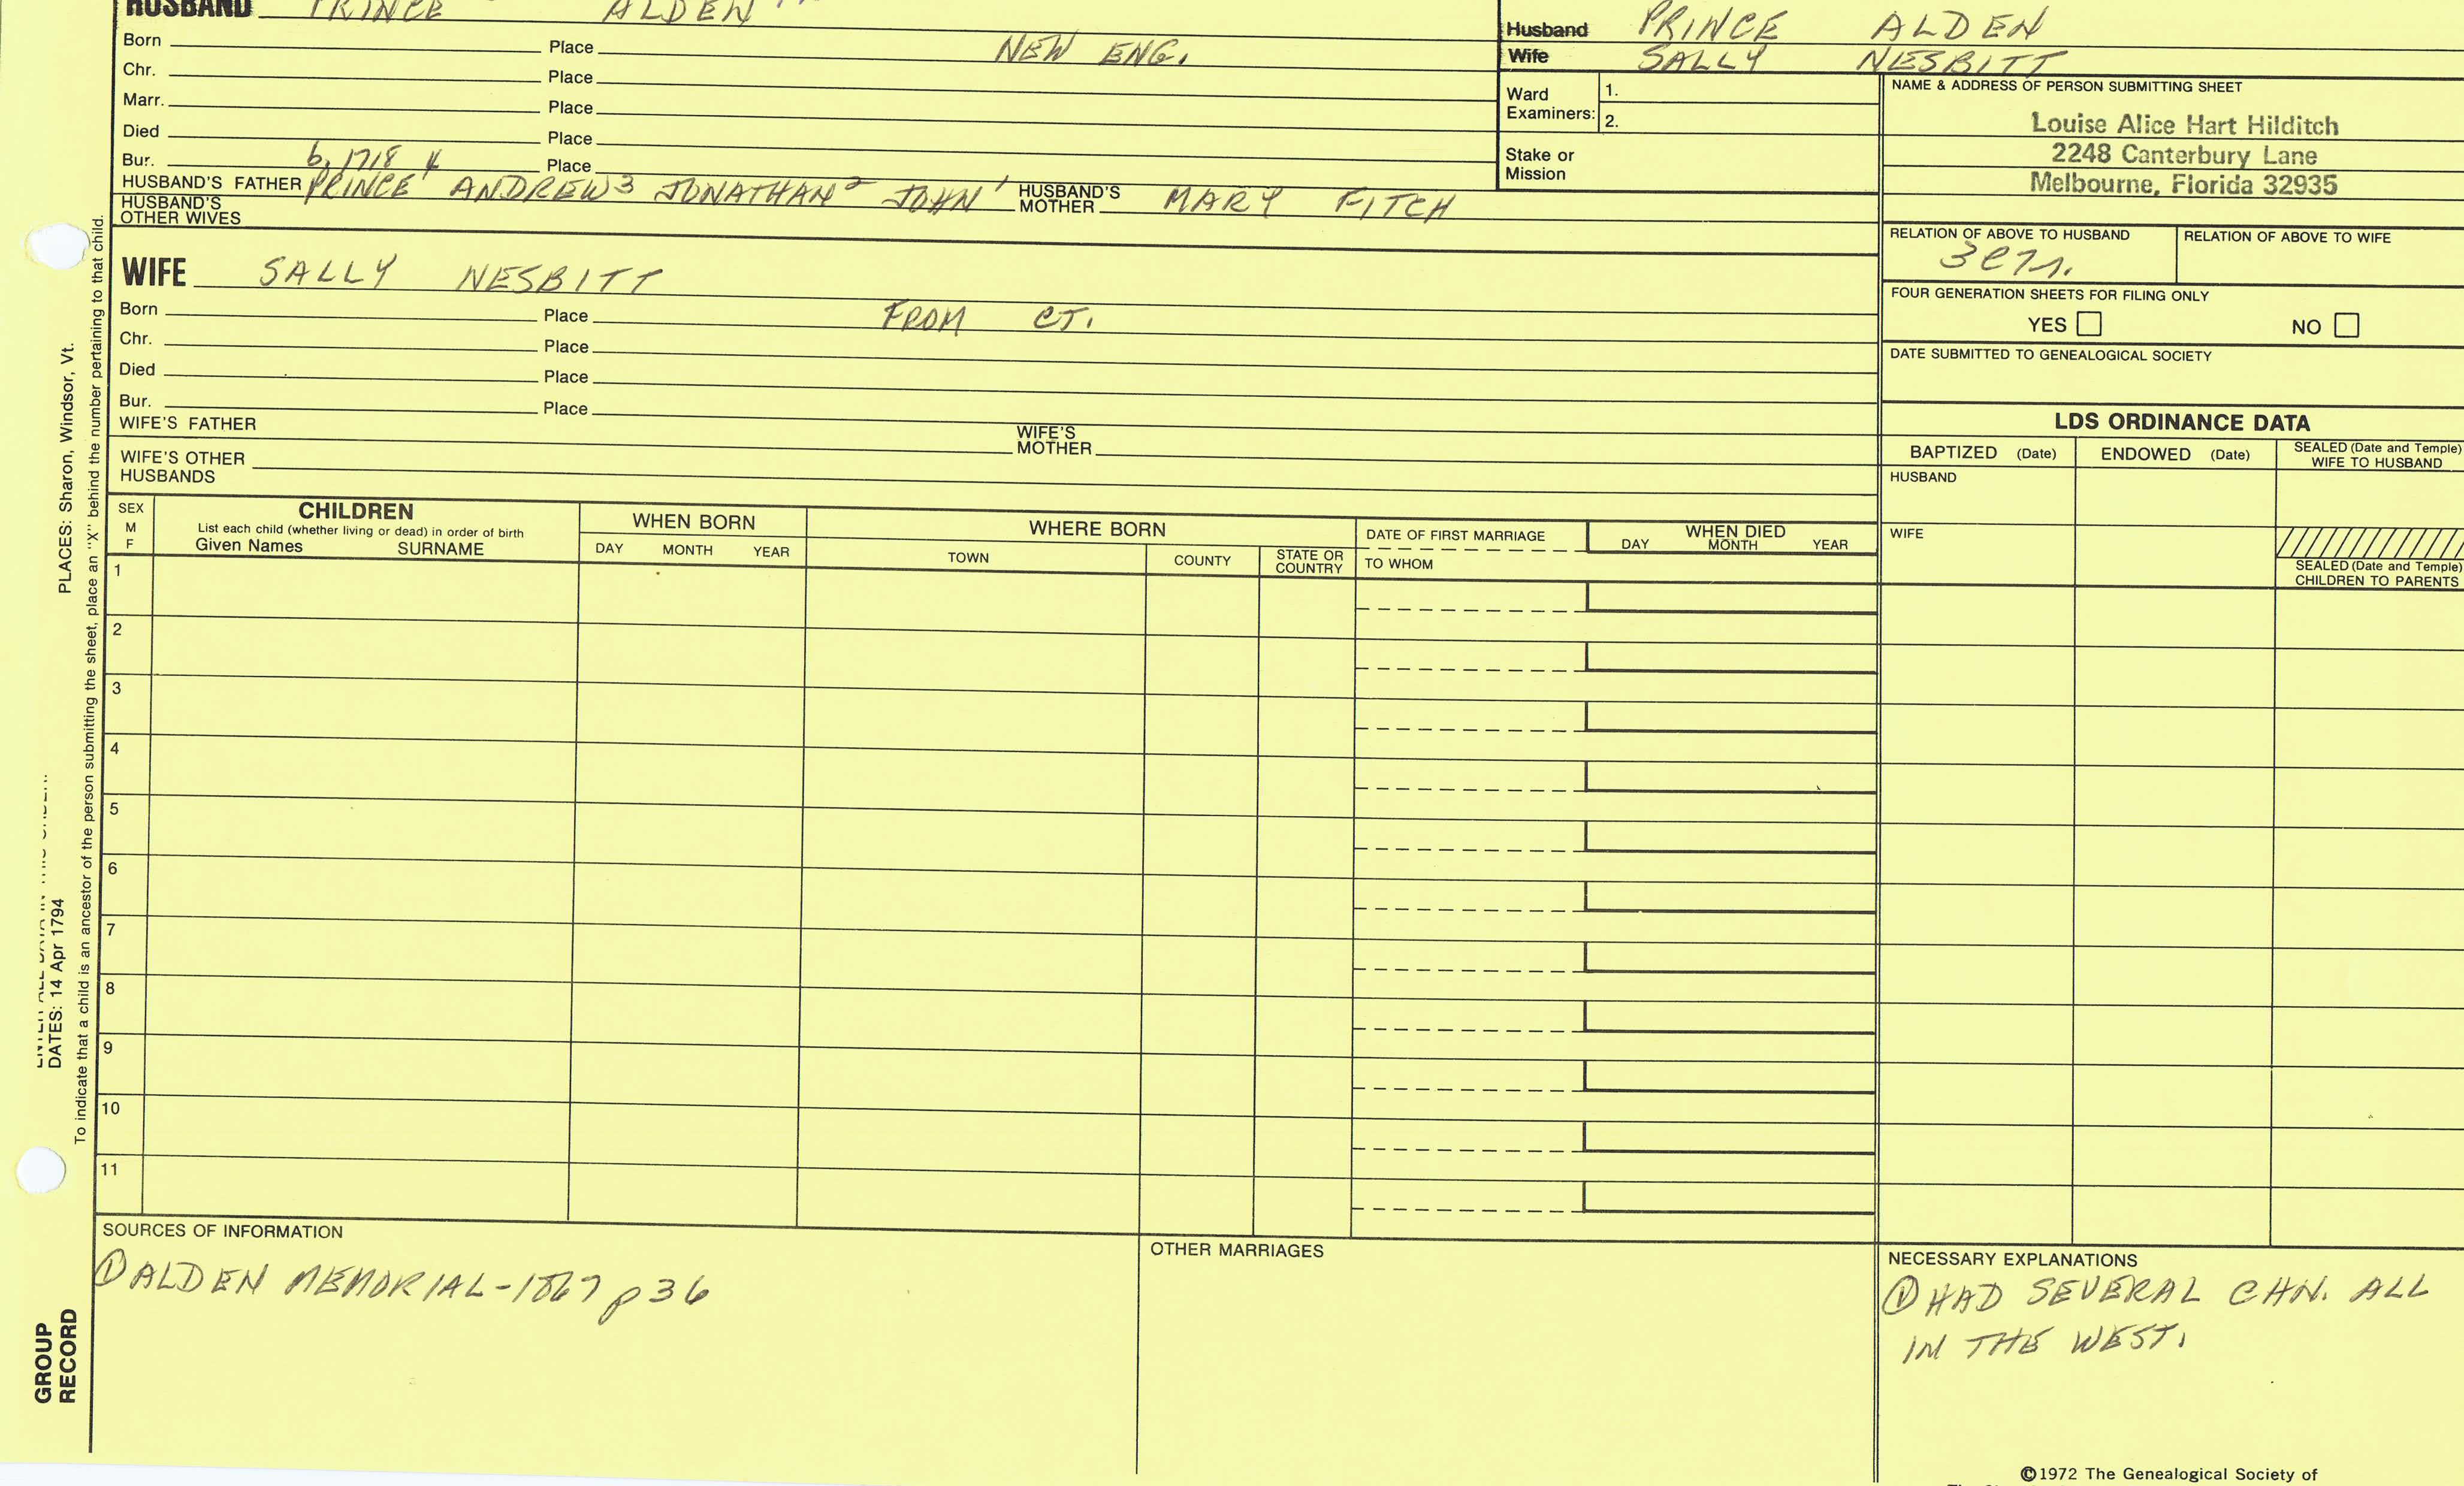 HUSBAND PRINCE ALDEN
Born Place NEW ENG.
Chr. Place
Marr. Place
Died Place
Bur. Place
b. 1718 4
HUSBAND'S FATHER PRINCE ANDREW3 JONATHAN2 JOHN1 HUSBAND'S MOTHER MARY FITCH
HUSBAND'S OTHER WIVES
WIFE SALLY NESBITT
Born Place FROM CT.
Chr. Place
Died Place
Bur. Place
WIFE'S FATHER WIFE'S MOTHER
WIFE'S OTHER HUSBANDS
Husband PRINCE ALDEN
Wife SALLY NESBITT
Ward Examiners: 1.
2.
Stake or Mission
NAME & ADDRESS OF PERSON SUBMITTING SHEET
Louise Alice Hart Hilditch
2248 Canterbury Lane
Melbourne, Florida 32935
RELATION OF ABOVE TO HUSBAND RELATION OF ABOVE TO WIFE
FOUR GENERATION SHEETS FOR FILING ONLY
YES NO
DATE SUBMITTED TO GENEALOGICAL SOCIETY
LDS ORDINANCE DATA
BAPTIZED (Date) ENDOWED (Date) SEALED (Date and Temple) WIFE TO HUSBAND
HUSBAND
WIFE
SEALED (Date and Temple) CHILDREN TO PARENTS
SEX M F
CHILDREN
List each child (whether living or dead) in order of birth
Given Names SURNAME
WHEN BORN
DAY MONTH YEAR
WHERE BORN
TOWN COUNTY STATE OR COUNTRY
DATE OF FIRST MARRIAGE
TO WHOM
WHEN DIED
DAY MONTH YEAR
1
2
3
4
5
6
7
8
9
10
11
SOURCES OF INFORMATION
① ALDEN MEMORIAL-1867 p 36
OTHER MARRIAGES
NECESSARY EXPLANATIONS
① HAD SEVERAL CHN. ALL
IN THE WEST.
©1972 The Genealogical Society of
PLACES: Sharon, Windsor, Vt.
DATES: 14 Apr 1794
To indicate that a child is an ancestor of the person submitting the sheet, place an "X" behind the number pertaining to that child.
GROUP
RECORD